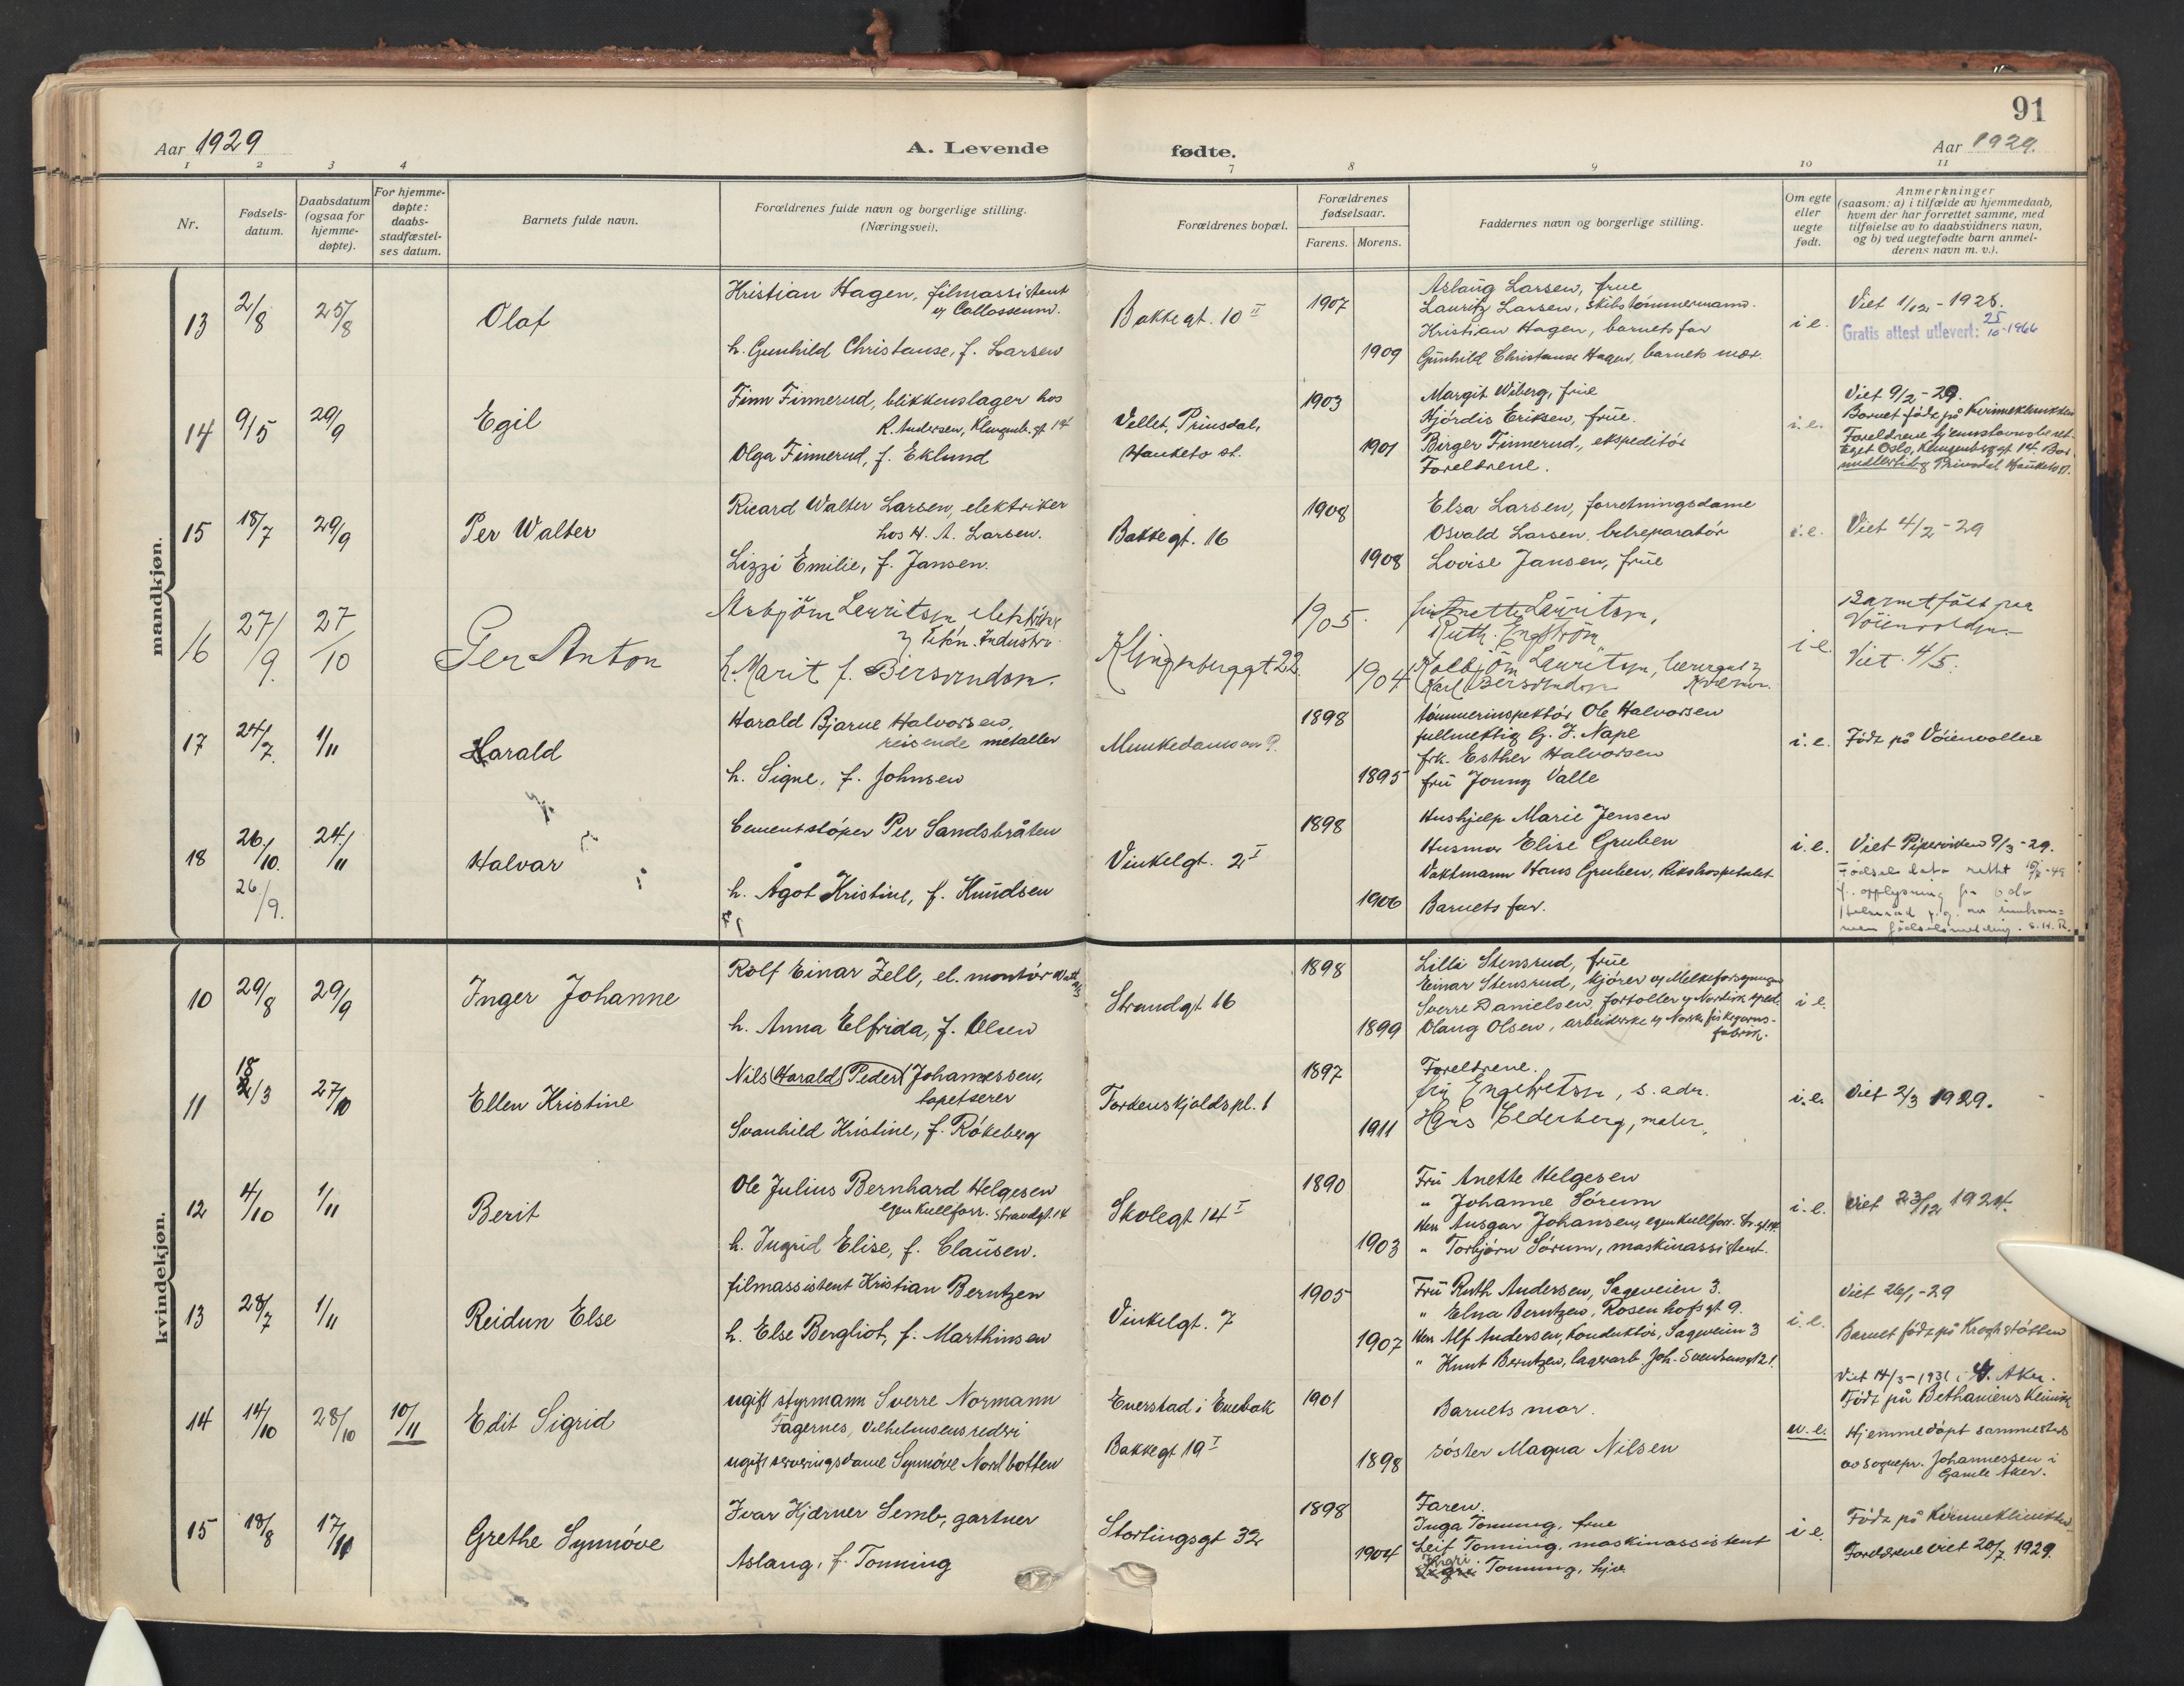 91
Aar 1929
A. Levende
fødte.
Aar 1929.
1 2 3 4 7 8 9 10 11
Nr.
Fødsels-
datum.
Daabsdatum
(ogsaa for
hjemme-
døpte).
For hjemme-
døpte:
daabs-
stadfæstel-
ses datum.
Barnets fulde navn.
Forældrenes fulde navn og borgerlige stilling.
(Næringsvei).
Forældrenes bopæl.
Forældrenes
fødselsaar.
Farens. Morens.
Faddernes navn og borgerlige stilling.
Om egte
eller
uegte
født.
Anmerkninger
(saasom: a) i tilfælde av hjemmedaab,
hvem der har forrettet samme, med
tilføielse av to daabsvidners navn,
og b) ved uegtefødte barn anmel-
derens navn m. v.).
mandkjøn.
13 2/8 25/8 Olaf
Kristian Hagen, filmassistent
v/ Collosseum.
h. Gunhild Christanse, f. Larsen
Bakkegt. 10 II
1907
1909
Aslaug Larsen, frue
Lauritz Larsen, skibstømmermann.
Kristian Hagen, barnets far
Gunhild Christanse Hagen, barnets mor.
i e.
Viet 1/12 - 1928.
Gratis attest utlevert: 25/10-1966
14 9/5 29/9 Egil
Finn Finnerud, blikkenslager hos
R. Andersen, Klingenb. gt 14
Olga Finnerud, f. Eklund
Vellet, Prinsdal,
Hauketo st.
1903
1901
Margit Wiberg, frue
Hjørdis Eriksen, frue.
Birger Finnerud, ekspeditør
Foreldrene.
i. e.
Viet 9/2 - 29.
Barnet født på Kvinneklinikken
Foreldrene hjemstavnsberet-
tiget Oslo, Klingenberggt 14. Bor
midlertidig Prinsdal Hauketo st.
15 18/7 29/9 Per Walter
Ricard Walter Larsen, elektriker
hos H. A. Larsen.
Lizzi Emilie, f. Jansen.
Bakkegt. 16
1908
1908
Elsa Larsen, forretningsdame
Osvald Larsen, bilreparatør
Lovise Jansen, frue
i. e.
Viet 4/2 - 29
16 27/9. 27/10 Per Anton
Asbjörn Lauritsen elektriker
h. Marit f. Bersvendsen.
Klingenberggt 22
1905.
1904
fru Anette Lauritsen,
Ruth. Engström
Kolbjörn Lauritsen,
Karl Bersvendsen
i e.
Barnet født paa
Vöienvolden
Viet. 4/5.
17 24/7. 1/11 Harald
Harald Bjarne Halvorsen,
reisende metaller
h. Signe, f. Johnsen
Munkedamsv 9.
1898
1895
Tømmerinspektør Ole Halvorsen
fullmektig G. J. Nape
frk. Esther Halvorsen
fru Jonny Valle
i. e.
Født på Vøienvollen
18 26/10. 24/11 Halvar
26/9.
Cementstøper Per Sandsbråten
h. Ågot Kristine, f. Knudsen
Vinkelgt. 2 I
1898
1906
Hushjelp Marie Jensen
Husmor Elise Gruben
Vaktmann Hans Gruben, Rikshospitalet
Barnets far.
i. e.
Viet Piperviken 9/3 - 29.
Fødsels dato rettet 16/8-49
f. opplysning fra Oslo
Helseråd p.g. av innkom-
men fødselsmelding. S.H.R.
kvindekjøn.
10 29/8 29/9 Inger Johanne
Rolf Einar Zell, el. montør Watt A/S
h. Anna Elfrida, f. Olsen
Strandgt 16
1898
1899
Lilli Stensrud, frue
Einar Stensrud, kjører v/ Melkeforsyningen
Sverre Danielsen, fortoller v/ Nordisk sped.
Olaug Olsen, arbeiderske v/ Norsk fiskegarns-
fabrik.
i e.
11 18/3 27/10 Ellen Kristine
Nils (Harald) (Peder) Johannessen,
tapetserer
Svanhild Kristine, f. Røkeberg
Tordenskjoldspl. 1
1897
1911
Foreldrene.
fru Engebretsen, s. adr.
Hans Cederberg, maler.
i. e.
Viet 2/3 1929.
12 4/10 1/11 Berit
Ole Julius Bernhard Helgesen
egen kullforr. Strandgt. 14
h. Ingrid Elise, f. Clausen.
Skolegt 14 I
1890
1903
Fru Anette Helgesen
" Johanne Sørum
Herr Ansgar Johansen, egen kullforr. Str.gt 14.
" Torbjørn Sørum, maskinassistent.
i. e.
Viet 23/12 1924.
13 28/7 1/11 Reidun Else
filmassistent Kristian Berntzen
h. Else Bergliot, f. Marthinsen
Vinkelgt. 7
1905
1907
Fru Ruth Andersen, Sageveien 3.
" Elna Berntzen, Rosenhofsgt 9.
Herr Alf Andersen, konduktør, Sageveien 3
" Knut Berntzen, lagerarb. Joh. Svendsensgt 21.
i. e.
Viet 26/1 - 29
Barnet født på Kroghstøtten
14 14/10 28/10 10/11 Edit Sigrid
ugift styrmann Sverre Normann
Fagernes, Vilhelmsens rederi
ugift serveringsdame Synnøve Nordbotten
Enerstad i Enebak
Bakkegt 19 I
1901
1898
Barnets mor.
søster Magna Nilsen
u. e.
Viet 14/3 - 1931 i V. Aker.
Født på Bethaniens klinikk
Hjemmedøpt sammesteds
av sognepr. Johannessen i
Gamle Aker.
15 18/8 17/11 Grethe Synnøve
Ivar Hjerner Semb, gartner
Aslaug, f. Tonning
Stortingsgt 32
1898
1904
Faren.
Inga Tonning, frue
Leif Tonning, maskinassistent
Ingri Tonning, hjv.
i e.
Født på Kvinneklinikken
Foreldrene viet 20/7 1929.